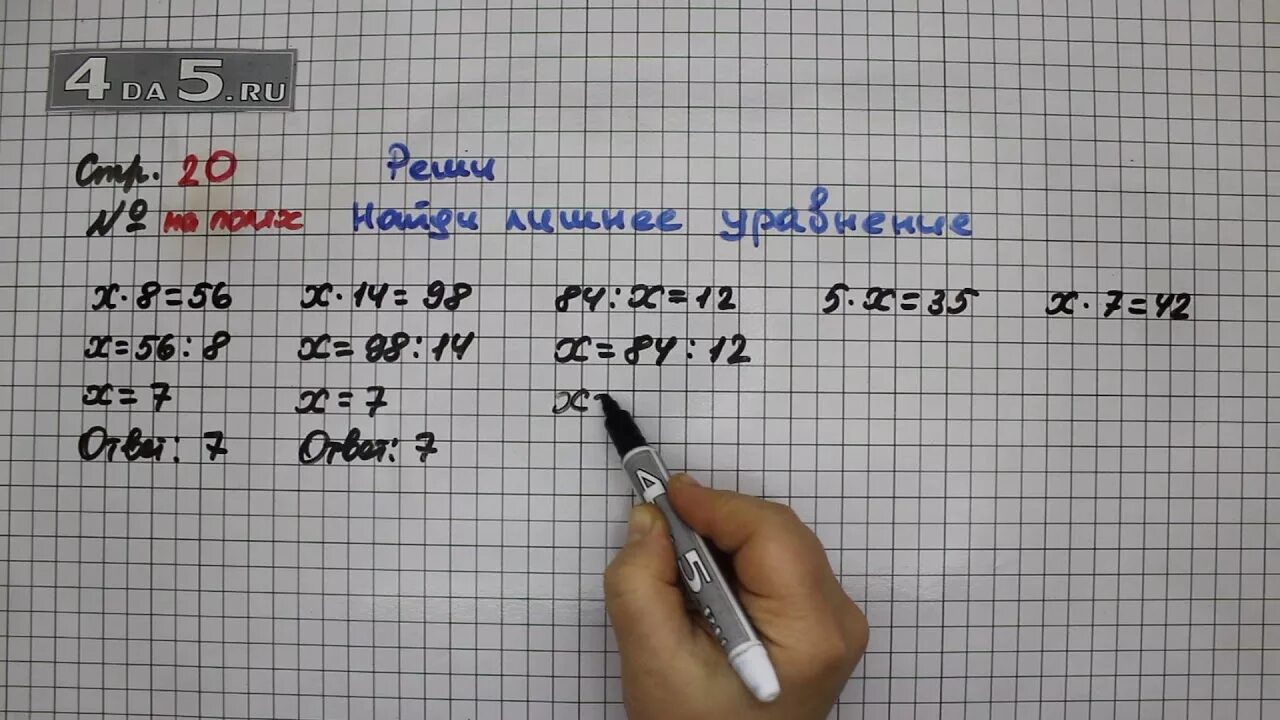 4DA5.RU
Стр. 20 Реши
№ на полях Найди лишнее уравнение
x·8=56 x·14=98 84:x=12 5·x=35 x·7=42
x=56:8 x=98:14 x=84:12
x=7 x=7 x=
Ответ: 7 Ответ: 7
4 5